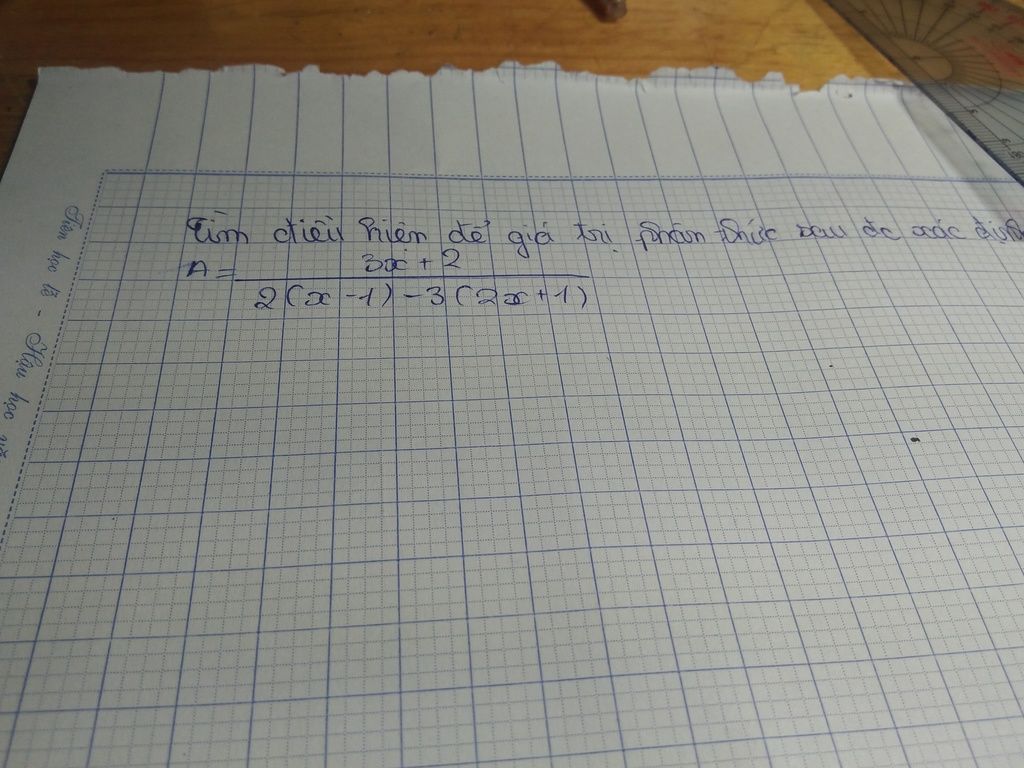 Tìm điều kiện để giá trị phân thức sau đc xác định
A = 3x + 2
2(x - 1) - 3(2x + 1)
Tiên học lễ - Hậu học vă